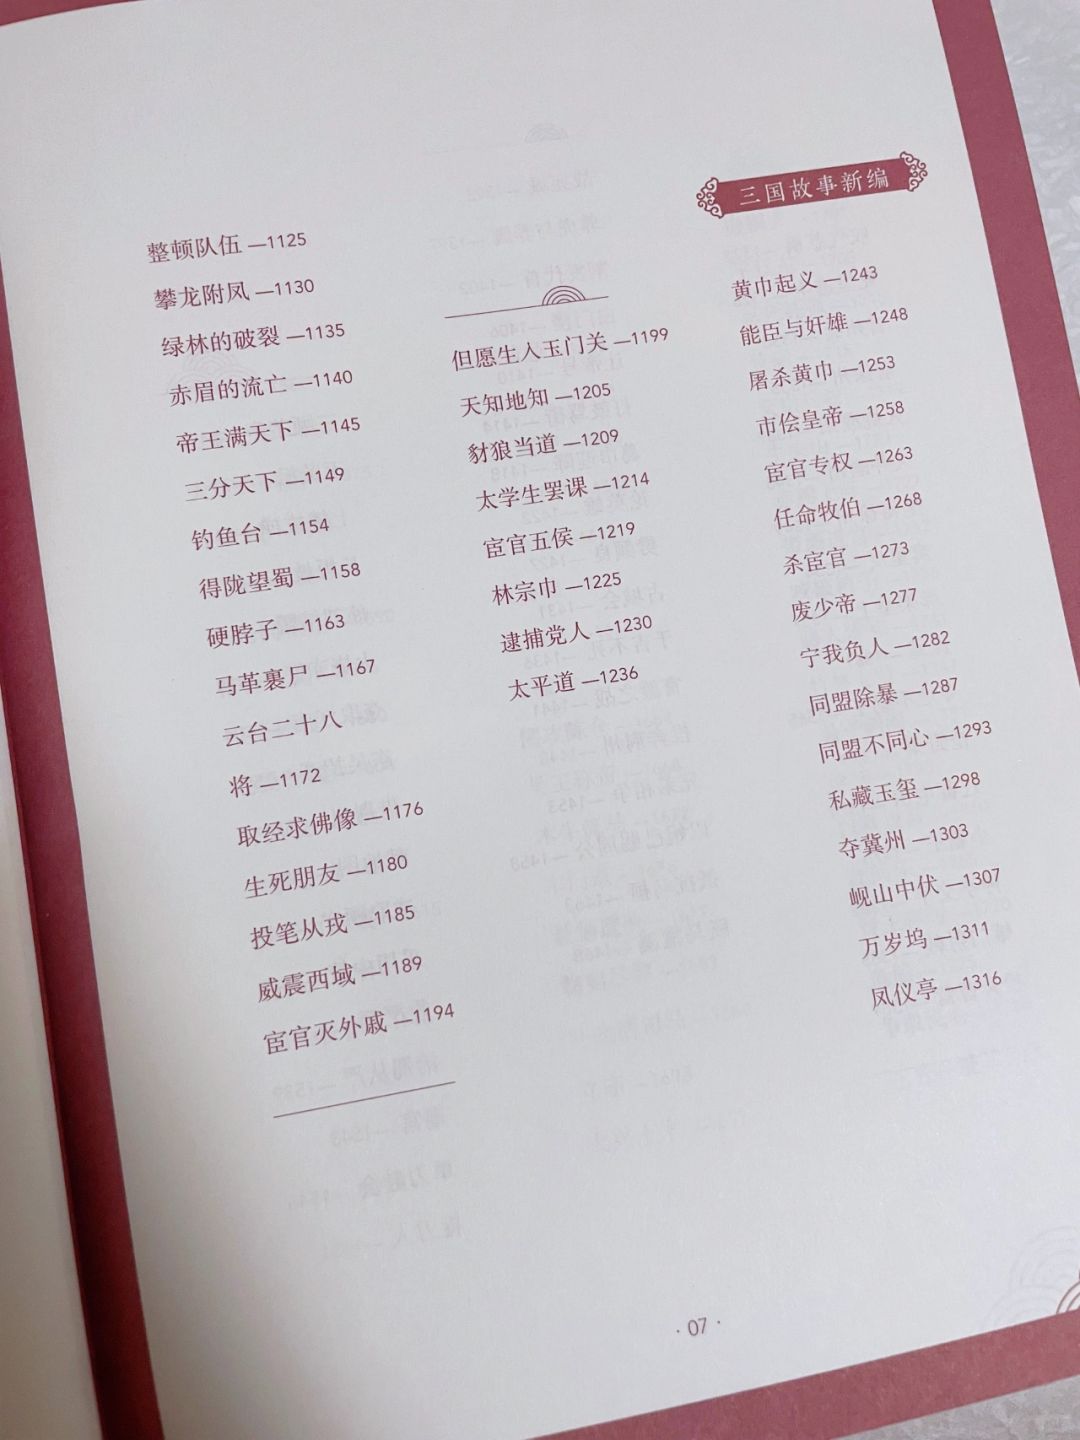 整顿队伍 —1125
攀龙附凤 —1130
绿林的破裂 —1135
赤眉的流亡 —1140
帝王满天下 —1145
三分天下 —1149
钓鱼台 —1154
得陇望蜀 —1158
硬脖子 —1163
马革裹尸 —1167
云台二十八
将 —1172
取经求佛像 —1176
生死朋友 —1180
投笔从戎 —1185
威震西域 —1189
宦官灭外戚 —1194
但愿生入玉门关 —1199
天知地知 —1205
豺狼当道 —1209
太学生罢课 —1214
宦官五侯 —1219
林宗巾 —1225
逮捕党人 —1230
太平道 —1236
三国故事新编
黄巾起义 —1243
能臣与奸雄 —1248
屠杀黄巾 —1253
市侩皇帝 —1258
宦官专权 —1263
任命牧伯 —1268
杀宦官 —1273
废少帝 —1277
宁我负人 —1282
同盟除暴 —1287
同盟不同心 —1293
私藏玉玺 —1298
夺冀州 —1303
岘山中伏 —1307
万岁坞 —1311
凤仪亭 —1316
· 07 ·